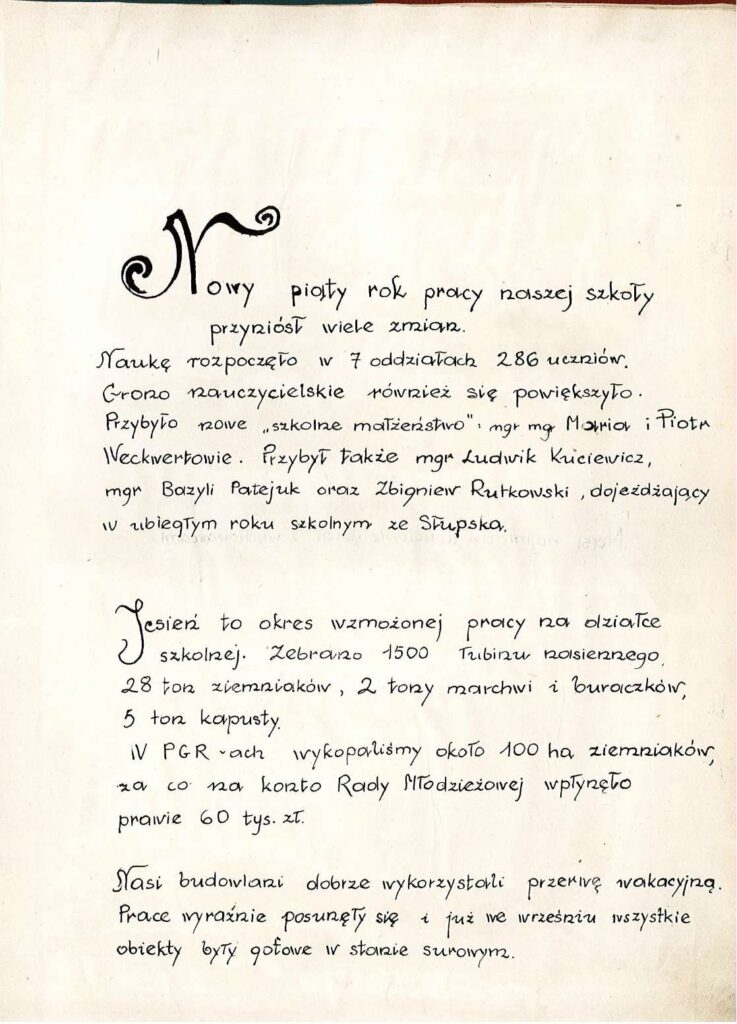 Nowy piąty rok pracy naszej szkoły
przyniósł wiele zmian.
Naukę rozpoczęło w 7 oddziałach 286 uczniów.
Grono nauczycielskie również się powiększyło.
Przybyło nowe „szkolne małżeństwo": mgr mg Maria i Piotr
Weckwertowie. Przybył także mgr Ludwik Kuciewicz,
mgr Bazyli Patejuk oraz Zbigniew Rutkowski, dojeżdżający
w ubiegłym roku szkolnym ze Słupska.
Jesień to okres wzmożonej pracy na działce
szkolnej. Zebrano 1500 łubinu nasiennego,
28 ton ziemniaków, 2 tony marchwi i buraczków,
5 ton kapusty.
W PGR-ach wykopaliśmy około 100 ha ziemniaków,
za co na konto Rady Młodzieżowej wpłynęło
prawie 60 tys. zł.
Nasi budowlani dobrze wykorzystali przerwę wakacyjną.
Prace wyraźnie posunęły się i już we wrześniu wszystkie
obiekty były gotowe w stanie surowym.